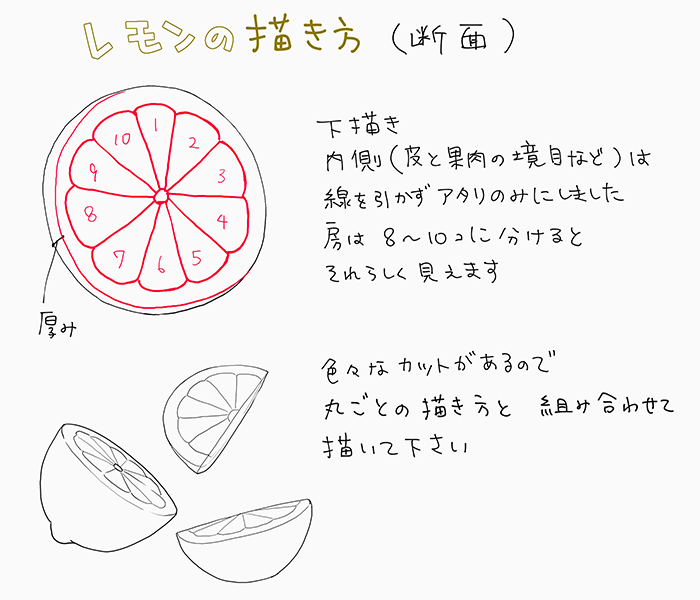 レモンの描き方(断面)
1
2
3
4
5
6
7
8
9
10
厚み
下描き
内側(皮と果肉の境目など)は
線を引かずアタリのみにしました
房は8〜10コに分けると
それらしく見えます
色々なカットがあるので
丸ごとの描き方と 組み合わせて
描いて下さい